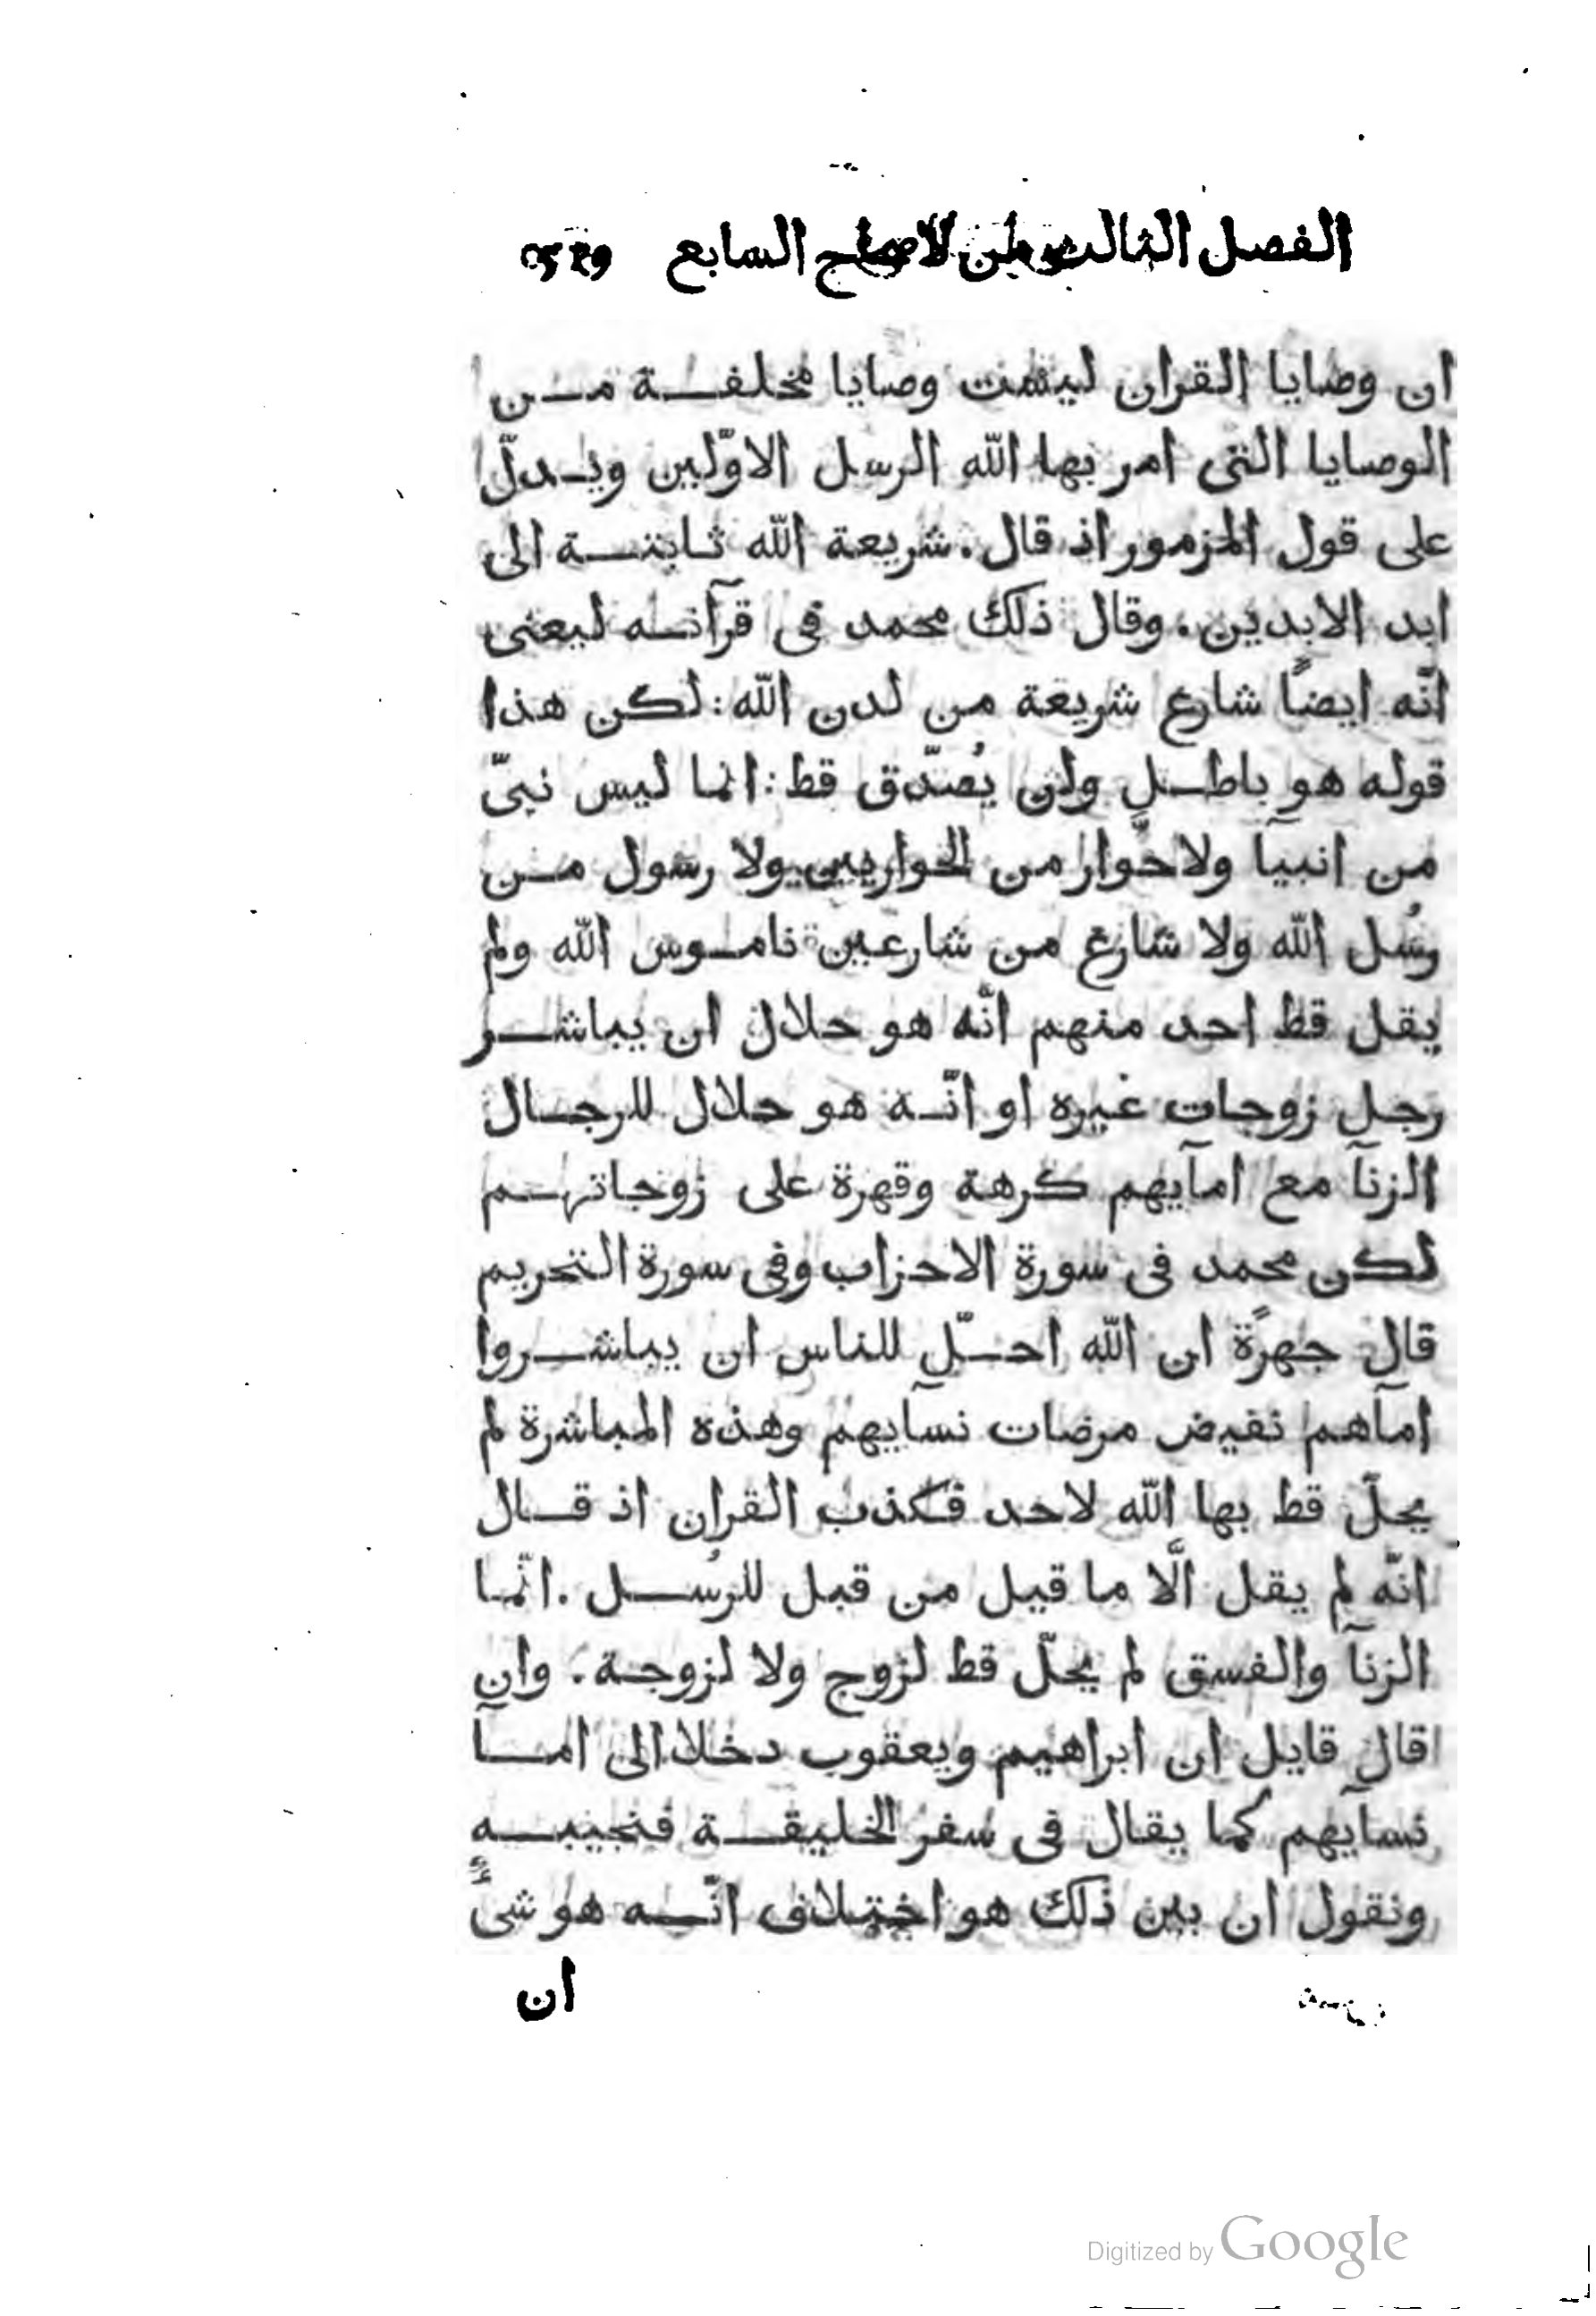 الفصل الثالث من الاصحاح السابع
ان وصايا القران ليست وصايا مخلفة من
الوصايا التى امر بها الله الرسل الاوّلين ويدلّ
على قول المزمور اذ قال. شريعة الله ثابتة الى
ابد الابدين. وقال ذلك محمد فى قرآنه ليعنى
انّه ايضًا شارع شريعة من لدن الله: لكن هذا
قوله هو باطل ولن يُصدّق قط: انما ليس نبىّ
من انبيآ ولا حوّار من الحواريين ولا رسول من
رسُل الله ولا شارع من شارعين ناموس الله ولم
يقل قط احد منهم انّه هو حلال ان يباشر
رجل زوجات غيره او انّه هو حلال للرجال
الزنآ مع امآيهم كرهة وقهرة على زوجاتهم
لكن محمد فى سورة الاحزاب وفى سورة التحريم
قال جهرًة ان الله احلّ للناس ان يباشروا
امآهم نقيض مرضات نسآيهم وهذه المباشرة لم
يحلّ قط بها الله لاحد فكذب القران اذ قال
انّه لم يقل الَّا ما قيل من قبل للرسُل. انّما
الزنآ والفسق لم يحلّ قط لزوج ولا لزوجة. وان
قال قايل ان ابراهيم ويعقوب دخلا الى امآ
نسآيهم كما يقال فى سفر الخليقة فنجيبه
ونقول ان بين ذلك هو اختلاف انّه هو شىءٌ
ان
Digitized by Google